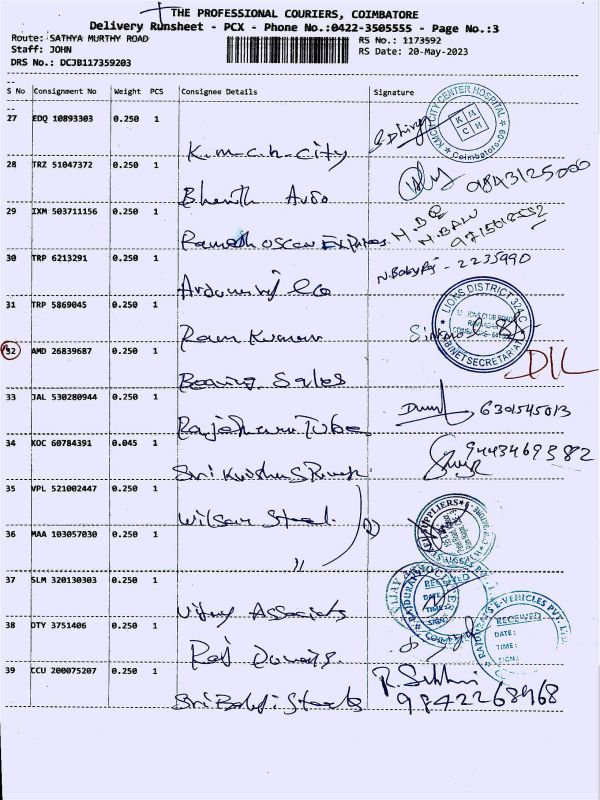 THE PROFESSIONAL COURIERS, COIMBATORE
Delivery Runsheet - PCX - Phone No.:0422-3505555 - Page No.:3
Route: SATHYA MURTHY ROAD
RS No.: 1173592
Staff: JOHN
RS Date: 20-May-2023
DRS No.: DCJB117359203
S No Consignment No Weight PCS Consignee Details Signature
27 EDQ 10893303 0.250 1
K.m.c.h.city
KMCH CITY CENTER HOSPITAL
K M C H
Coimbatore-09
28 TRZ 51047372 0.250 1
Bharath Auto
9843125000
29 IXM 503711156 0.250 1
Ramesh
H. BALU
30 TRP 6213291 0.250 1
Co
N.Babyraj - 2235990
31 TRP 5869045 0.250 1
Ram Kumar
LIONS DISTRICT 324 C
CABINET SECRETARIAT
32 AMD 26839687 0.250 1
Bearing Sales
D/L
33 JAL 530280944 0.250 1
Rajeshwari Tubes
6301545013
34 KOC 60784391 0.045 1
Sri Krishna
9443469382
35 VPL 521002447 0.250 1
Wilson Steel.
36 MAA 103057030 0.250 1
"
37 SLM 320130303 0.250 1
Vijay Associates
RECEIVED
DATE:
TIME:
SIGN:
38 OTY 3751406 0.250 1
Raj
E-VEHICLES PVT. LTD
RECEIVED
DATE:
TIME:
SIGN:
39 CCU 200075207 0.250 1
Sri Balaji Steels
9842268968